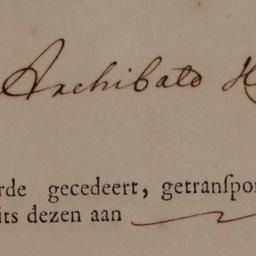 Archibald H
rde gecedeert, getranſpo
its dezen aan